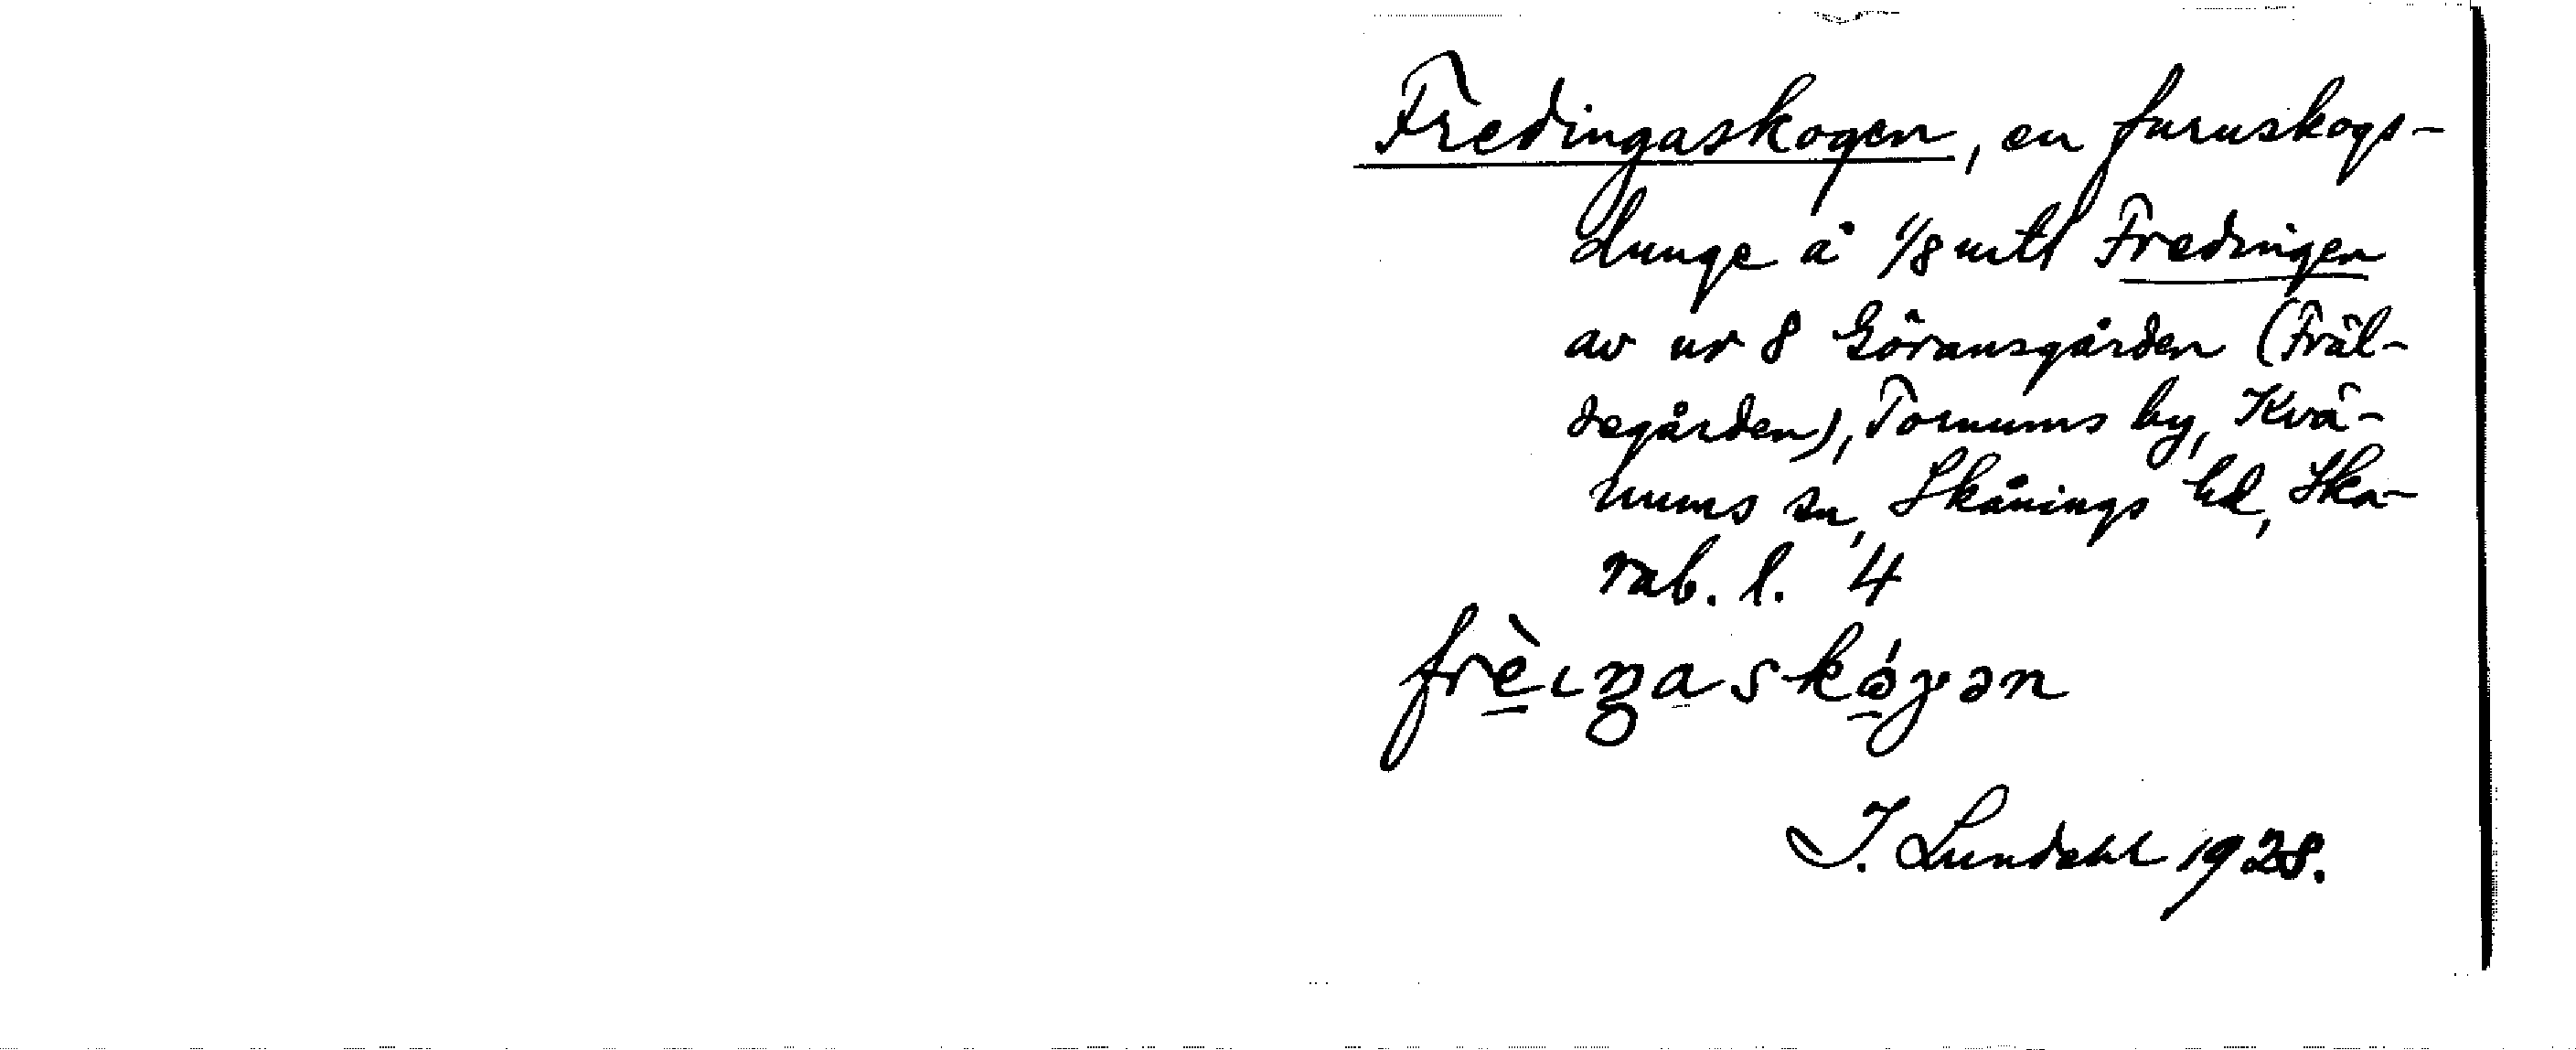 Fredingaskogen, en furuskogs-
dunge å 1/8 mtl Fredingen
av nr 8 Göransgården (Fräl-
segården), Tornums by, Kvä-
nums sn, Skånings hd, Ska-
rab. l. 4
J. Lundahl 1928.